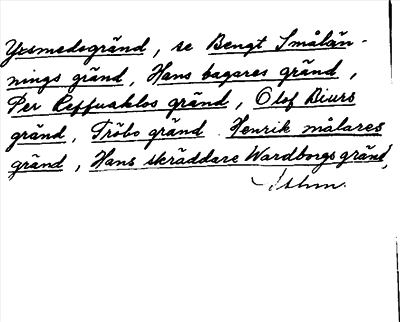 Yxsmedsgränd, se Bengt Smålän-
nings gränd, Hans bagares gränd,
Per Reffuaklos gränd, Olof Biurs
gränd, Tröbo gränd. Henrik målares
gränd, Hans skräddare Wardborgs gränd,
Sthm.